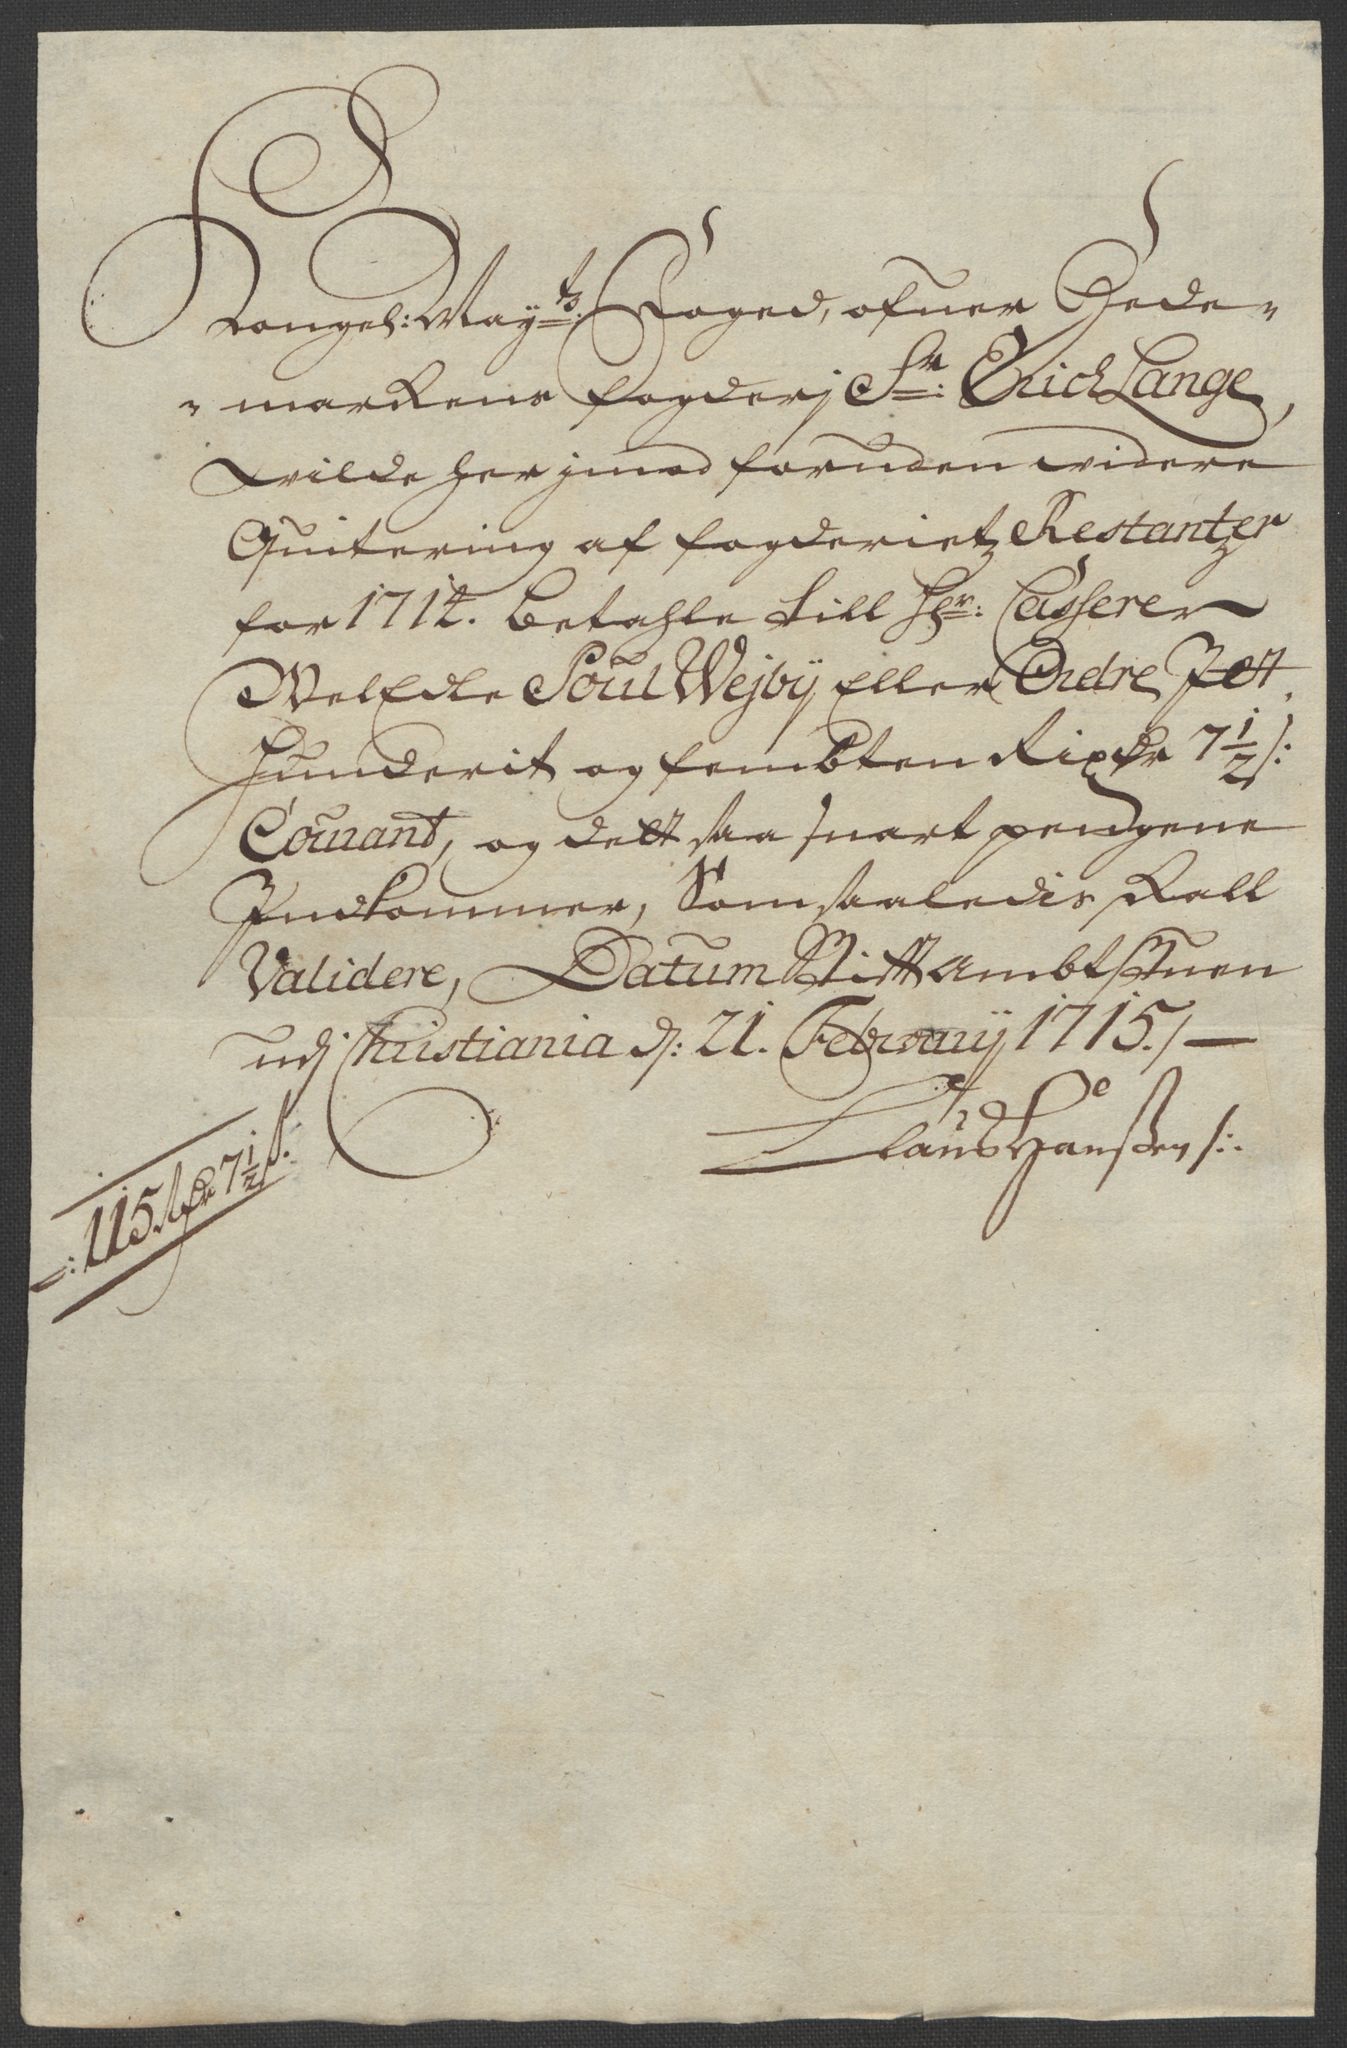 Kongel: Mayts. Foged, ofuer Hede-
-markens fogderj Sr: Erich Lange,
wilde her jmod foruden widere
Quitering af fogderietz Restantzer
for 1714. betahle till Hr: Casserer
WelEdle Poul Wejbÿ Eller Ordre Jet
Hunderit og fembten Rixdr 7 1/2 s:
Courant, og dett saa snart pengene
Indkommer, Som saaledis skall
Validere, Datum StifftAmbtstuen
udj Christiania d: 21. Februarij 1715./-
Claus Hanssen /:
-: 115. Rdr 7 1/2 s.